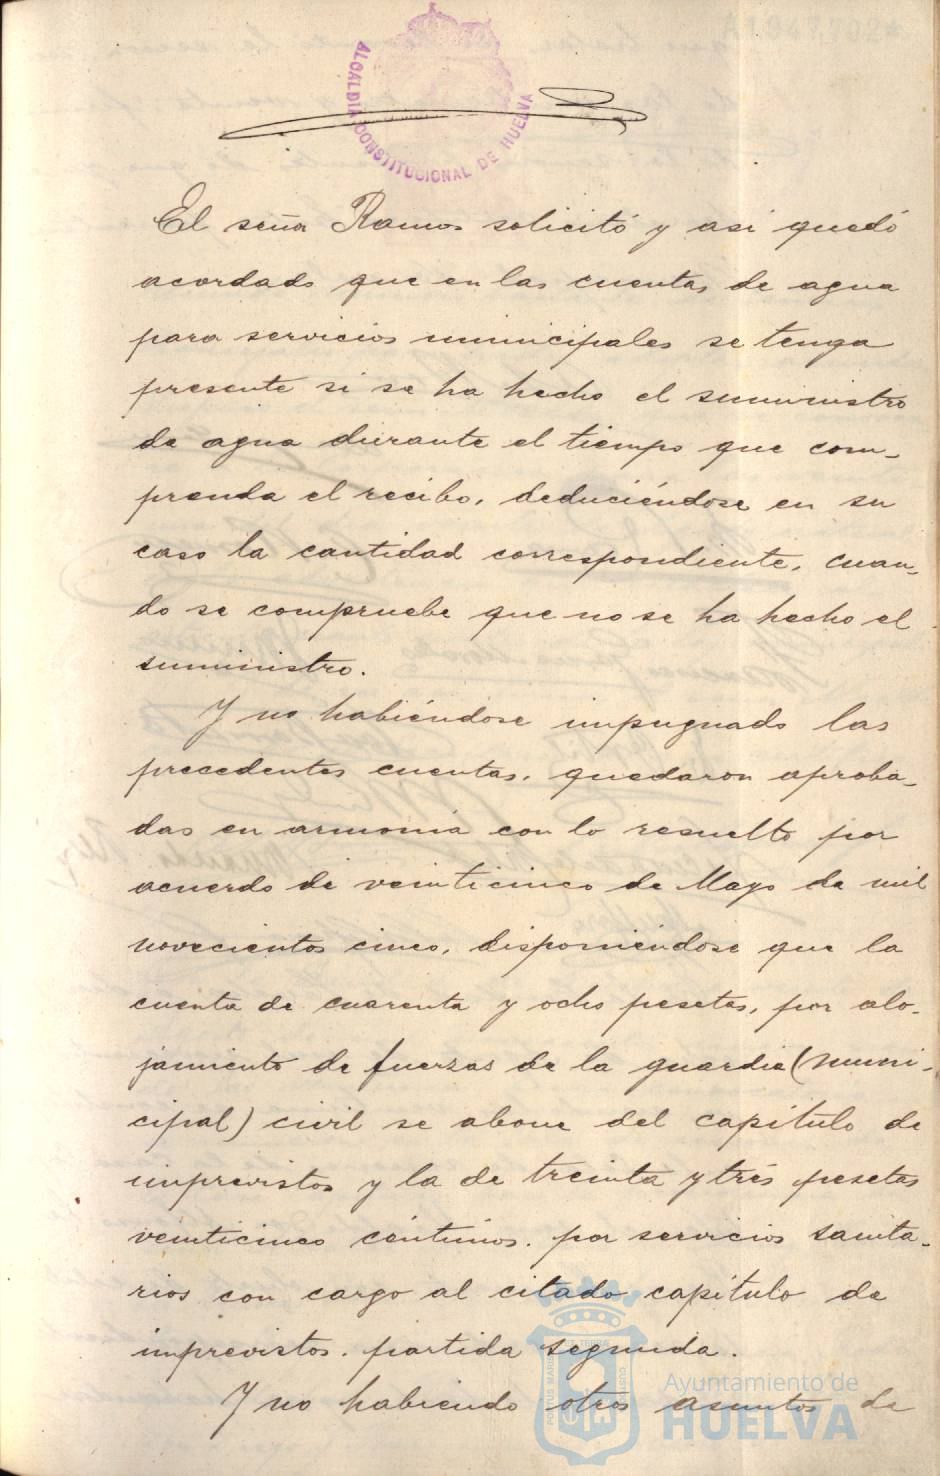 ALCALDÍA CONSTITUCIONAL DE HUELVA
El señor Ramos solicitó y así quedó
acordado que en las cuentas de agua
para servicios municipales se tenga
presente si se ha hecho el suministro
de agua durante el tiempo que com-
prenda el recibo, deduciéndose en su
caso la cantidad correspondiente, cuan-
do se compruebe que no se ha hecho el
suministro.
Y no habiéndose impugnado las
precedentes cuentas, quedaron aproba-
das en armonía con lo resuelto por
acuerdo de veinticinco de Mayo de mil
novecientos cinco, disponiéndose que la
cuenta de cuarenta y ocho pesetas, por alo-
jamiento de fuerzas de la guardia (muni-
cipal) civil se abone del capítulo de
imprevistos y la de treinta y trés pesetas
veinticinco céntimos. por servicios sanita-
rios con cargo al citado capítulo de
imprevistos. partida segunda.
Y no habiendo otros asuntos de
Ayuntamiento de
HUELVA